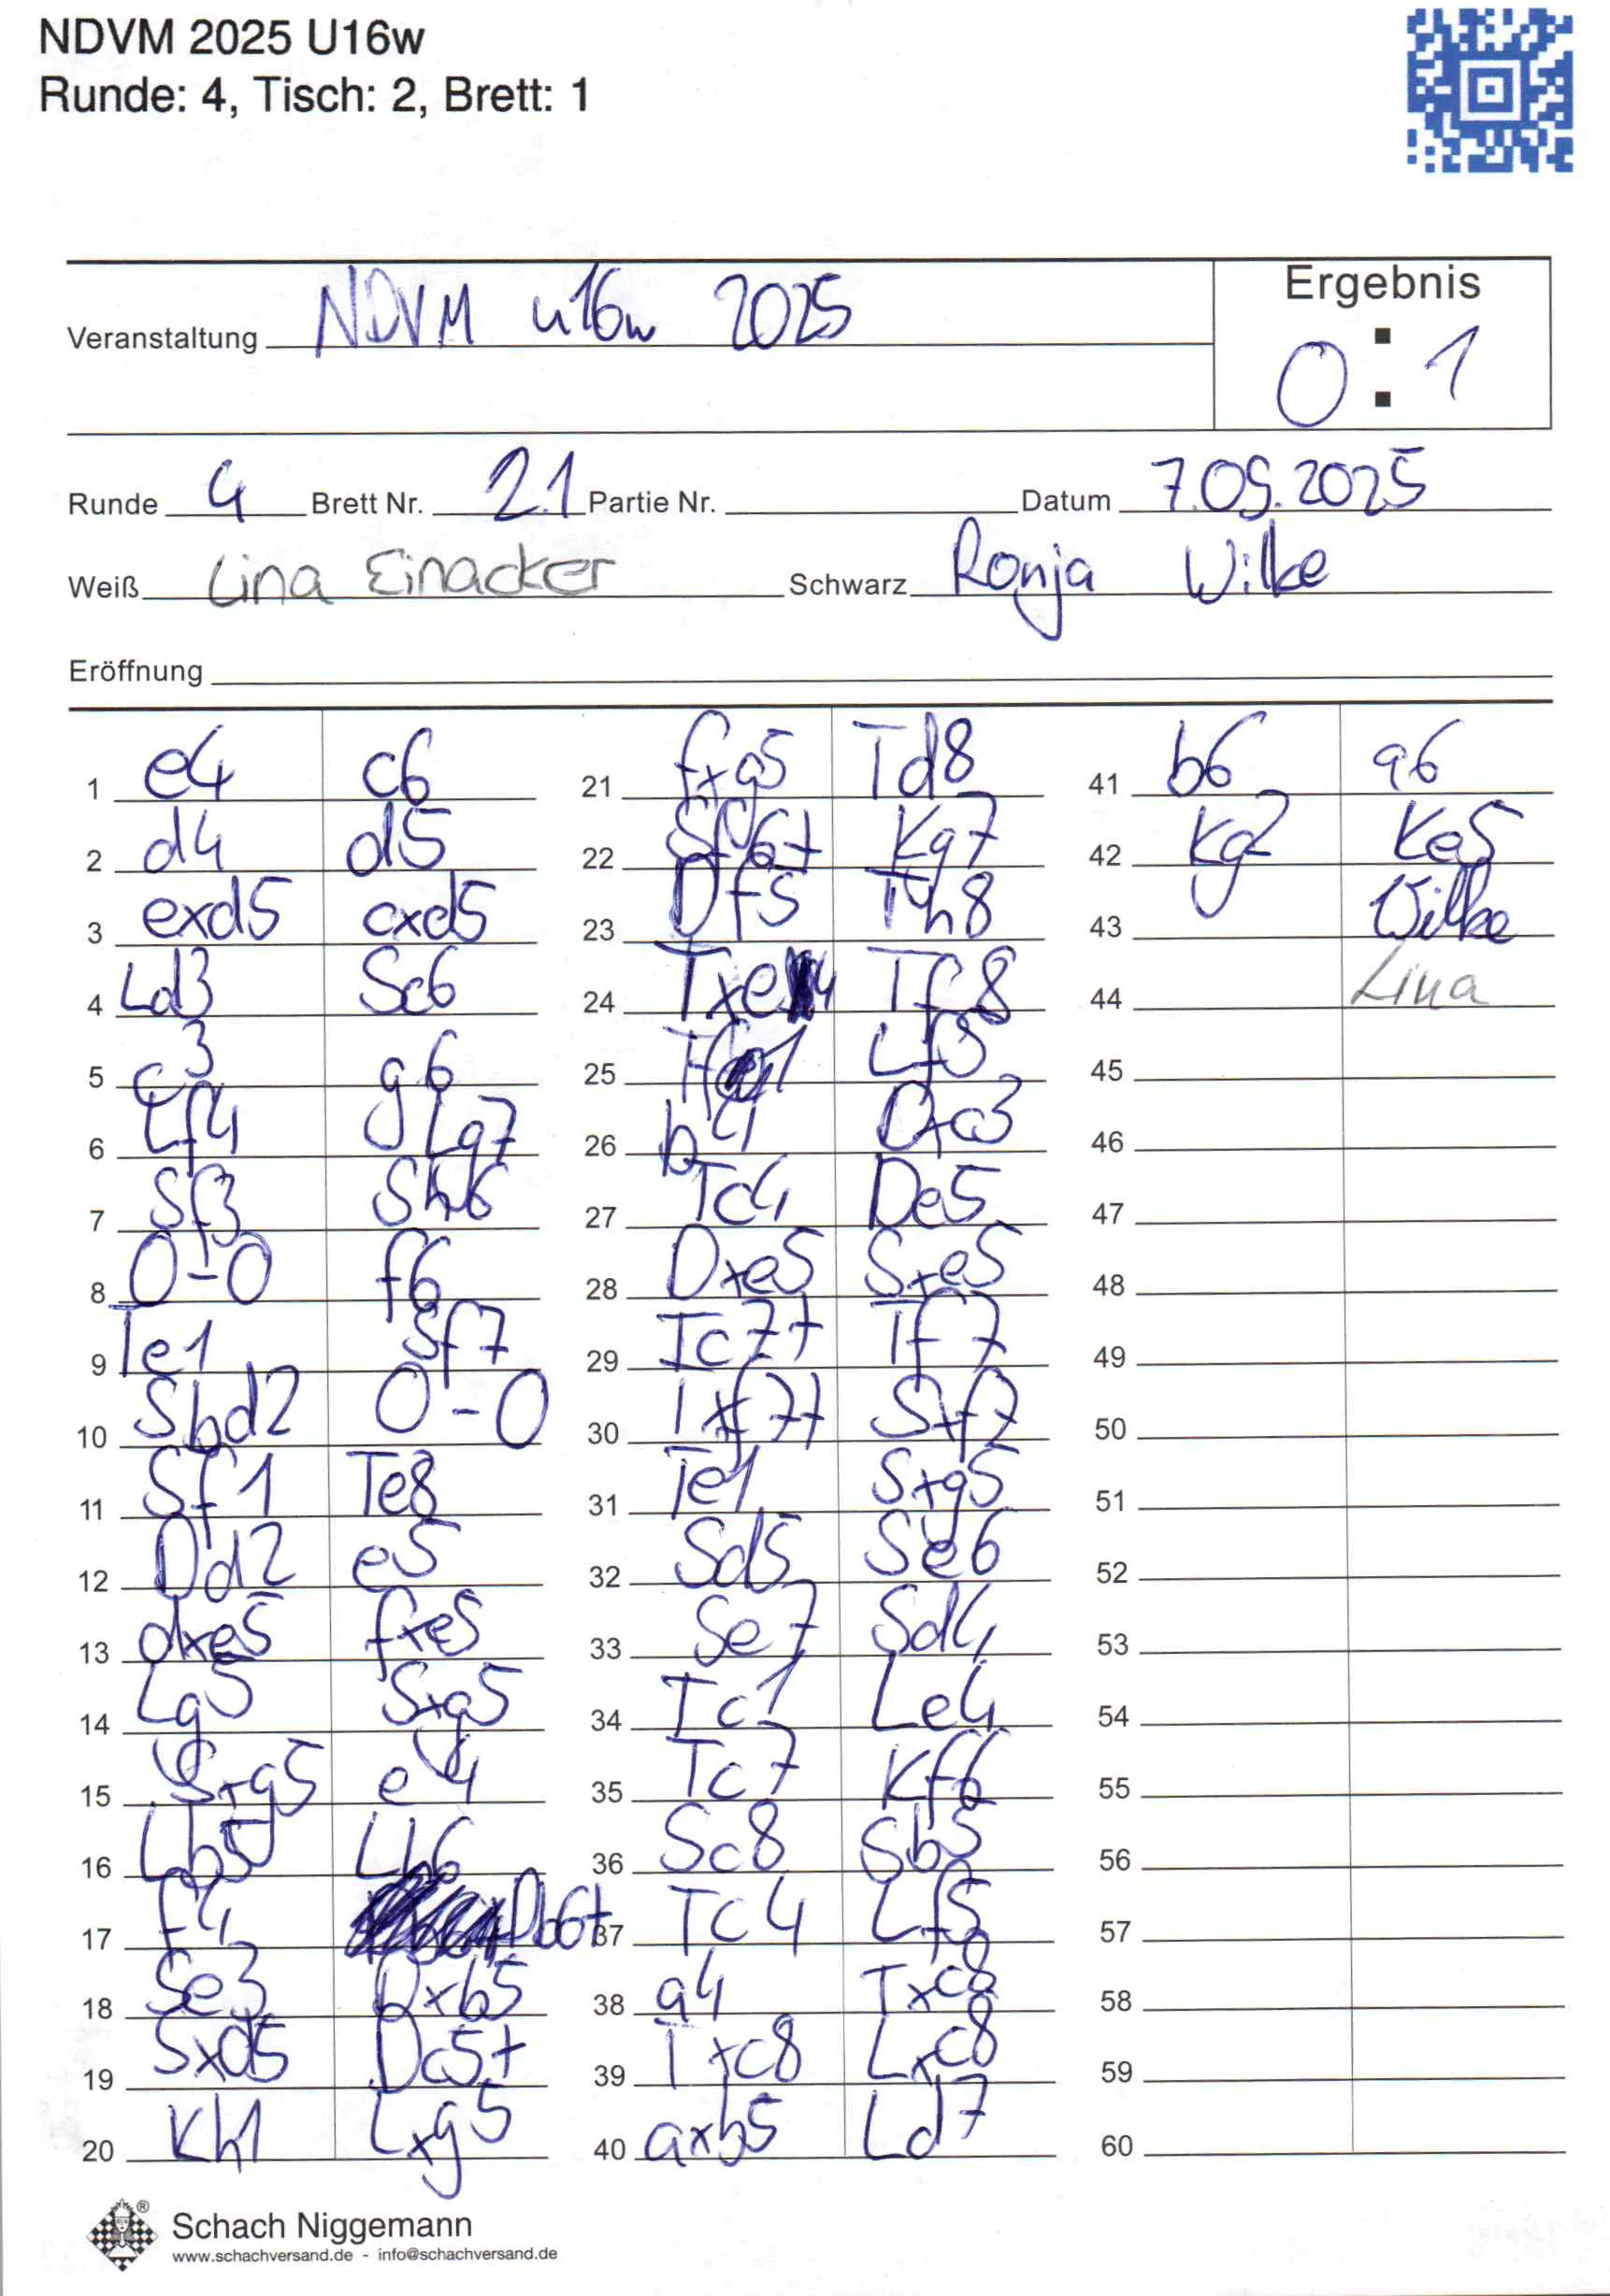 NDVM 2025 U16w
Runde: 4, Tisch: 2, Brett: 1
Veranstaltung NDVM u16w 2025
Ergebnis
0 : 1
Runde 4 Brett Nr. 2.1 Partie Nr. Datum 7.09.2025
Weiß Lina Einacker Schwarz Ronja Wilke
Eröffnung
1 e4 c6
2 d4 d5
3 exd5 cxd5
4 Ld3 Sc6
5 c3 g6
6 Lf4 Lg7
7 Sf3 Sh6
8 0-0 f6
9 Te1 Sf7
10 Sbd2 0-0
11 Sf1 Te8
12 Dd2 e5
13 dxe5 fxe5
14 Lg5 Sxg5
15 Sxg5 e4
16 Lb5 Lh6
17 f4 Db6+
18 Se3 Dxb5
19 Sxd5 Dc5+
20 Kh1 Lxg5
21 fxg5 Td8
22 Sf6+ Kg7
23 Df5 Th8
24 Txe4 Tf8
25 Lf5
26 h4 Dxc3
27 Tc4 De5
28 Dxe5 Sxe5
29 Tc7+ Tf7
30 Txf7+ Sxf7
31 Te1 Sxg5
32 Sd5 Se6
33 Se7 Sd4
34 Tc1 Le4
35 Tc7 Kf6
36 Sc8 Sb5
37 Tc4 Lf5
38 a4 Txc8
39 Txc8 Lxc8
40 axb5 Ld7
41 b6 a6
42 Kg2 Ke5
43 Wilke
44 Lina
45
46
47
48
49
50
51
52
53
54
55
56
57
58
59
60
Schach Niggemann
www.schachversand.de - info@schachversand.de